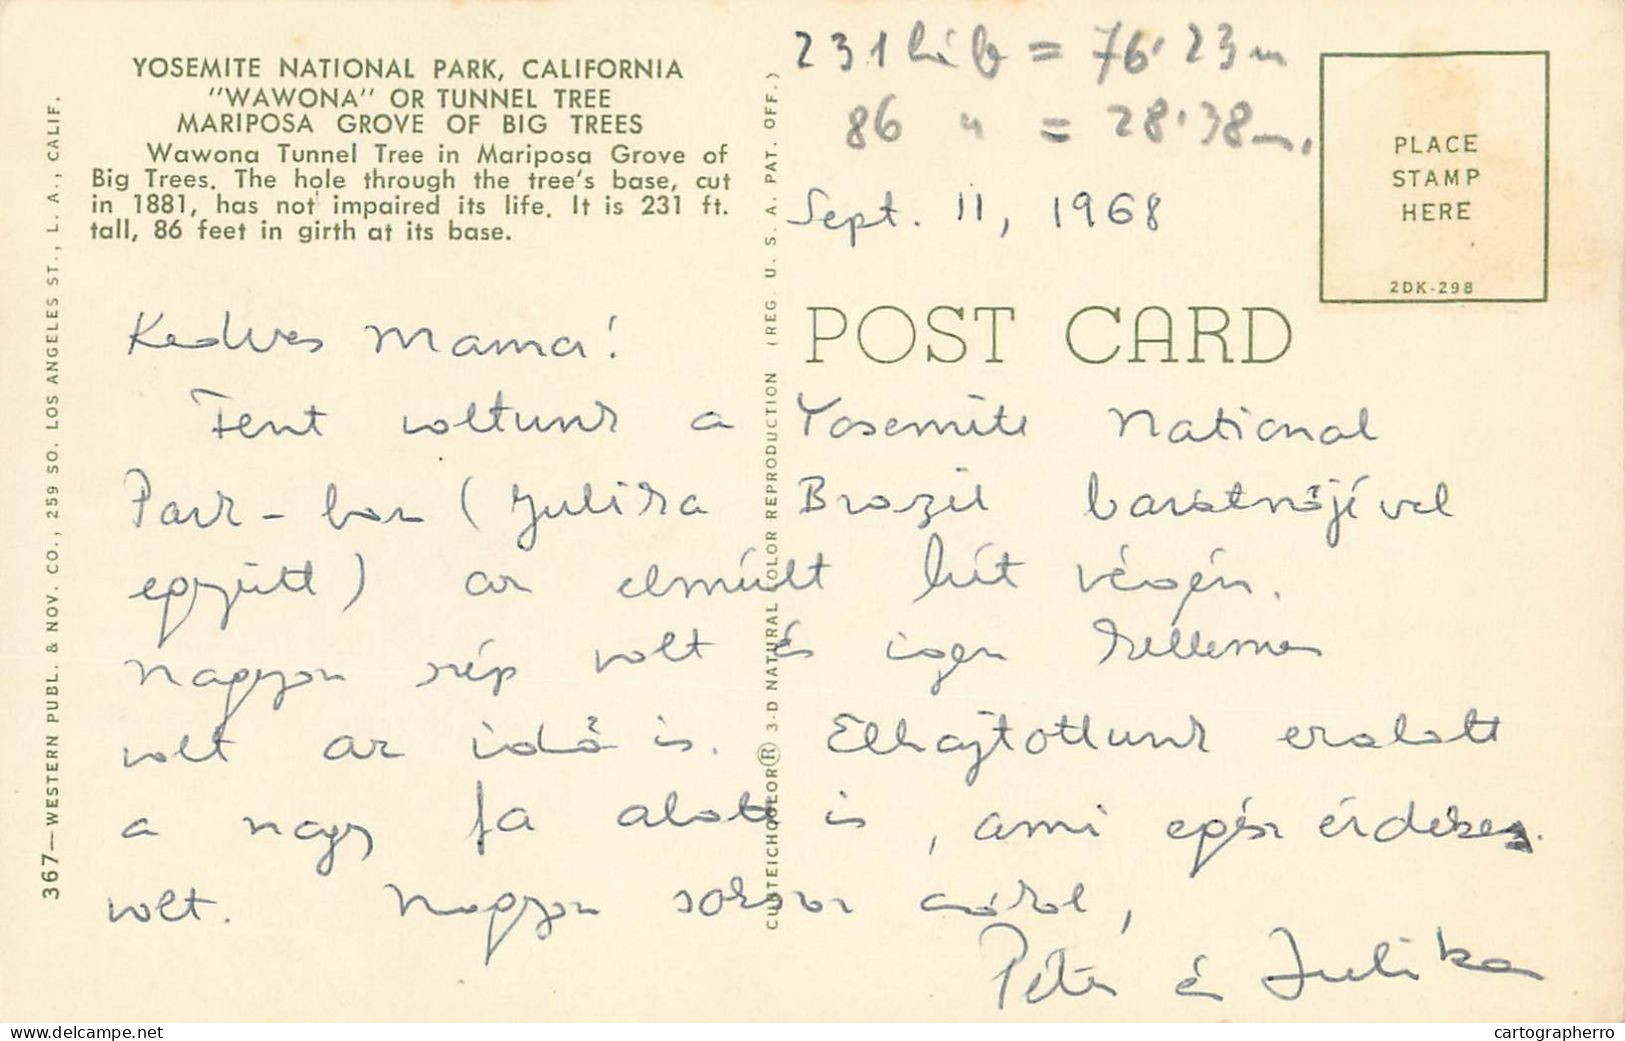 YOSEMITE NATIONAL PARK, CALIFORNIA
"WAWONA" OR TUNNEL TREE
MARIPOSA GROVE OF BIG TREES
Wawona Tunnel Tree in Mariposa Grove of
Big Trees. The hole through the tree's base, cut
in 1881, has not impaired its life. It is 231 ft.
tall, 86 feet in girth at its base.
367—WESTERN PUBL. & NOV. CO., 259 SO. LOS ANGELES ST., L. A., CALIF.
CURTEICHCOLOR® 3-D NATURAL COLOR REPRODUCTION (REG. U. S. A. PAT. OFF.)
231 láb = 76·23 m
86 " = 28·38 m.
Sept. 11, 1968
PLACE
STAMP
HERE
2DK-298
POST CARD
Kedves Mama!
Fent voltunk a Yosemite National
Park-ban (Julika Brazil barátnőjével
együtt) az elmúlt hét végén.
Nagyon szép volt és igen kellemes
volt az idő is. Elhajtottunk ezalatt
a nagy fa alatt is, ami egész érdekes
volt. Nagyon sokszor csókol,
Péter és Julika
cartographerro
www.delcampe.net